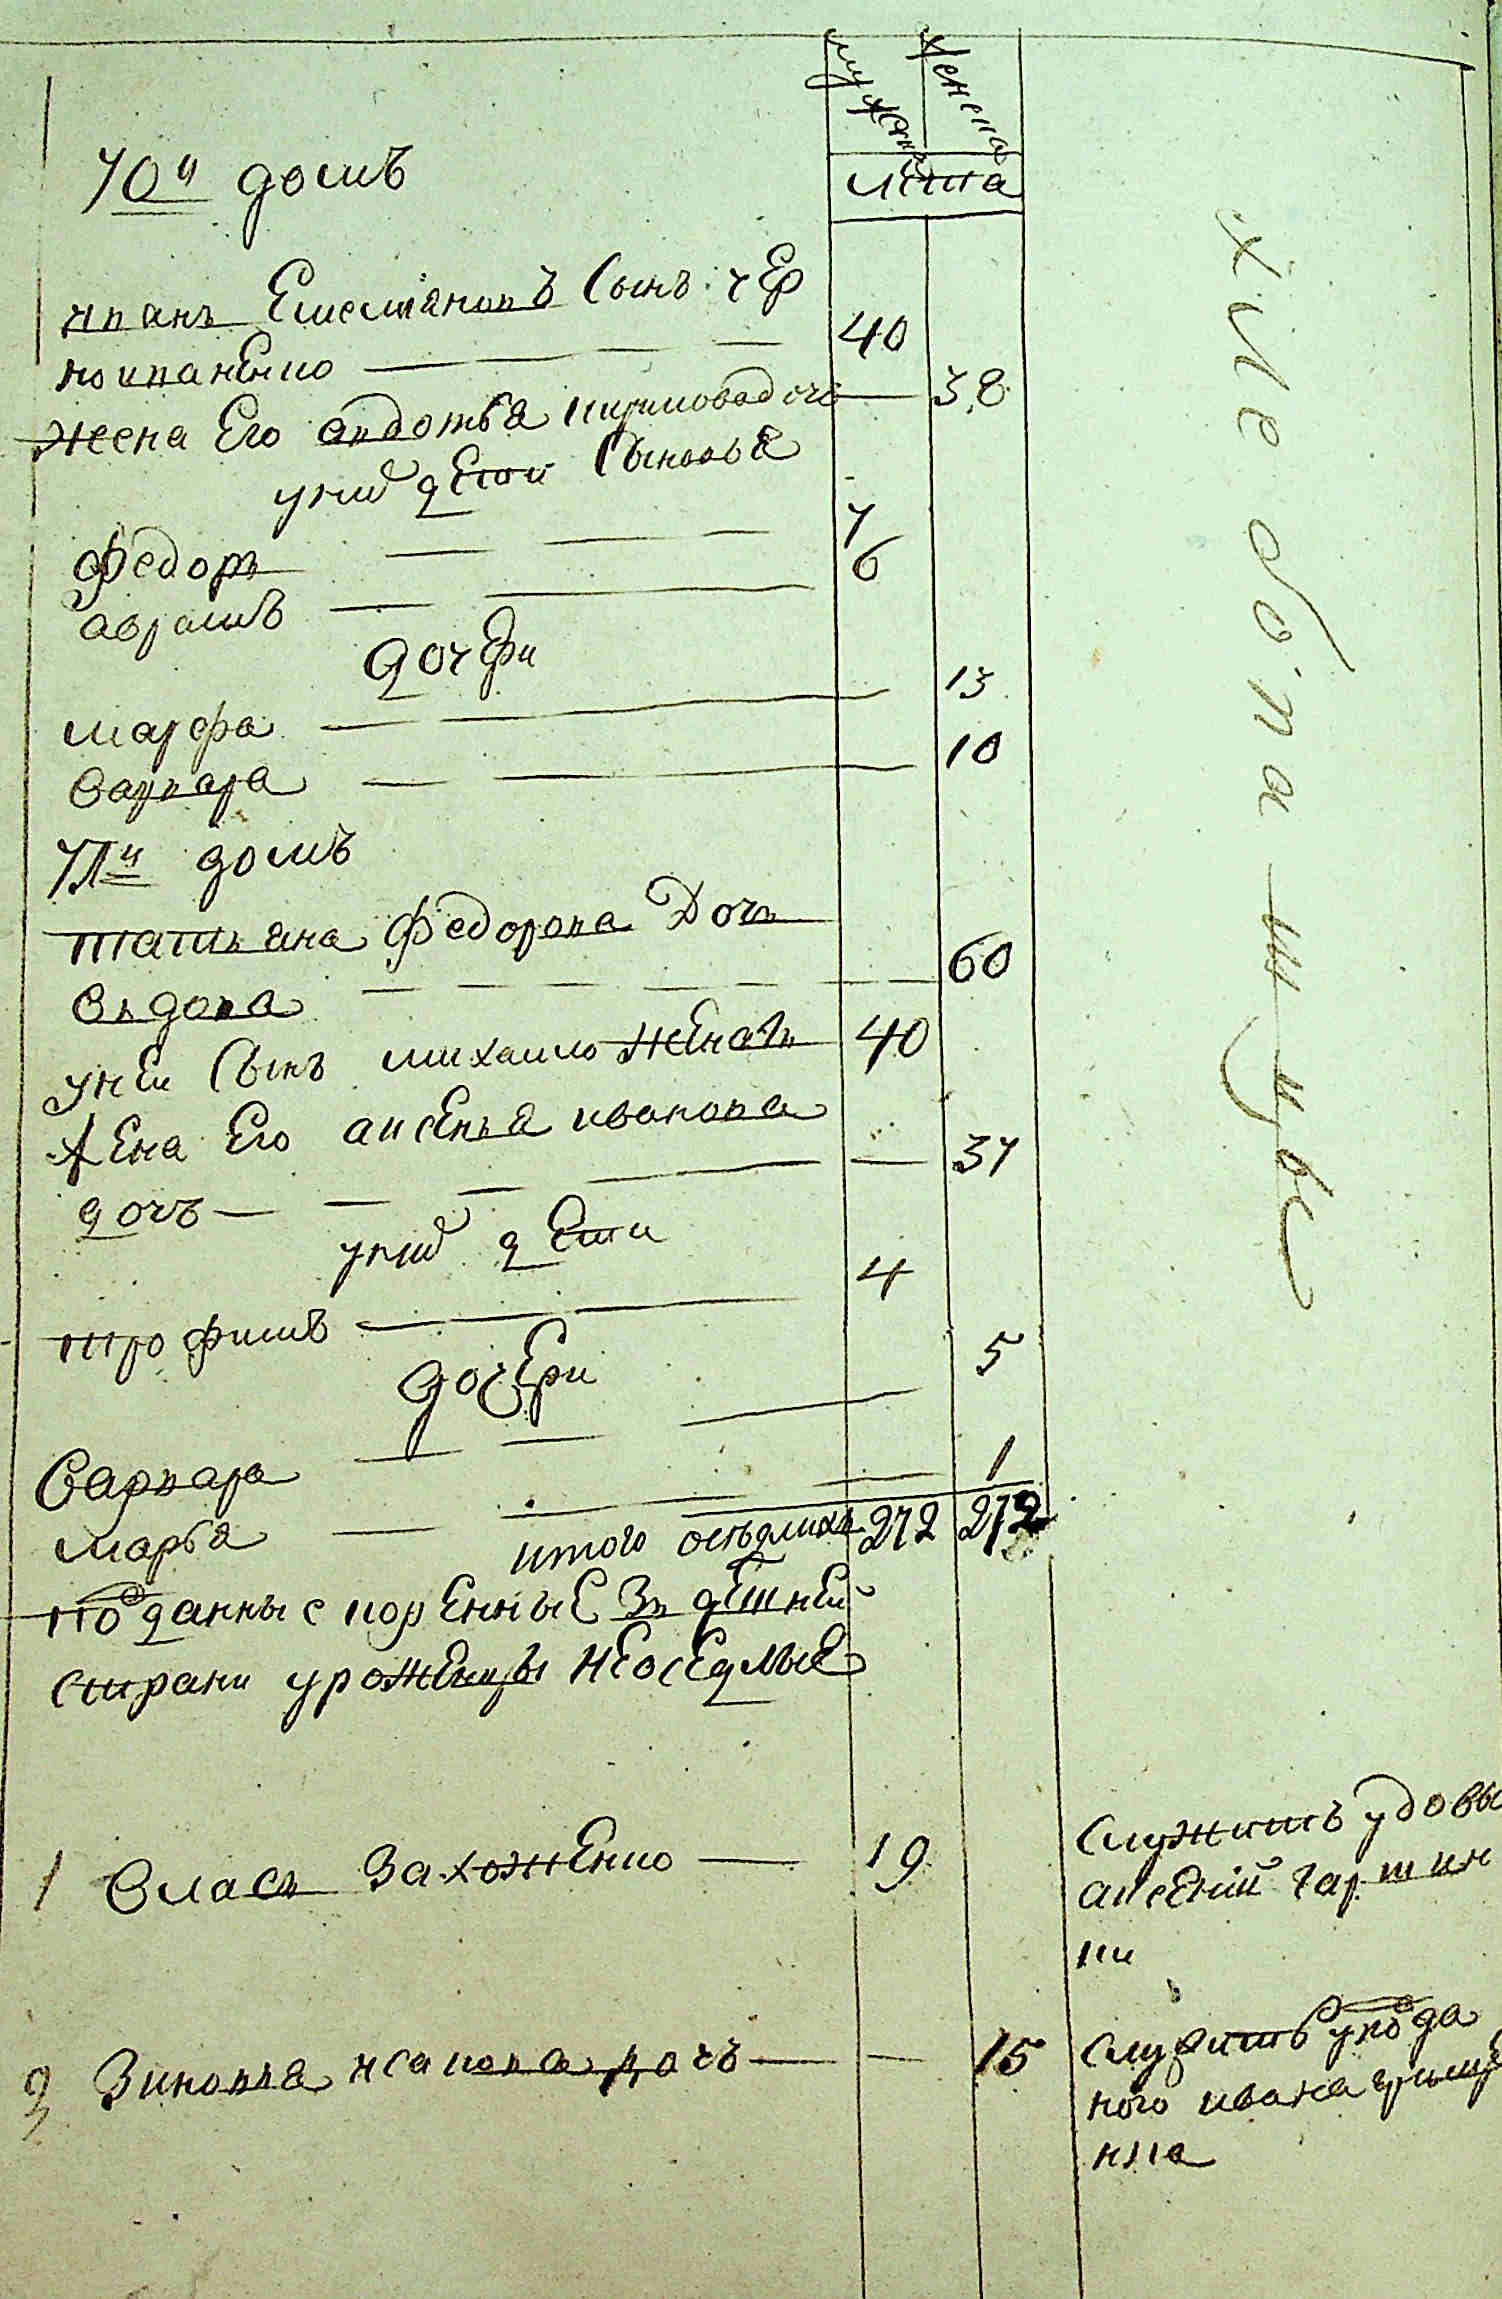 мужеска женска
лета
70й домъ
иванъ Емеляновъ Сынъ чер
ноиваненко 40
жена Его авдотья карпова дочь 38
у них дети Сыновья
Федоръ 7
аврамъ 6
дочери
марфа 13
варвара 10
71й домъ
татьяна Федорова Дочь
вдова 60
у ней Сынъ михаило женатъ 40
жена Его аксенья иванова
дочъ 37
у них дети
трофимъ 4
дочери
Варвара 5
марья 1
итого оседлихъ 272 272
подданные коренные Здешней
стирани уроженцы неоседлые
1 власъ Захоженко 19
Служитъ у довы
аксении гартин
ки
2 Зиновия исакова дочъ 15
Служитъ у подда
ного ивана грищ
нка
хлебопашцы